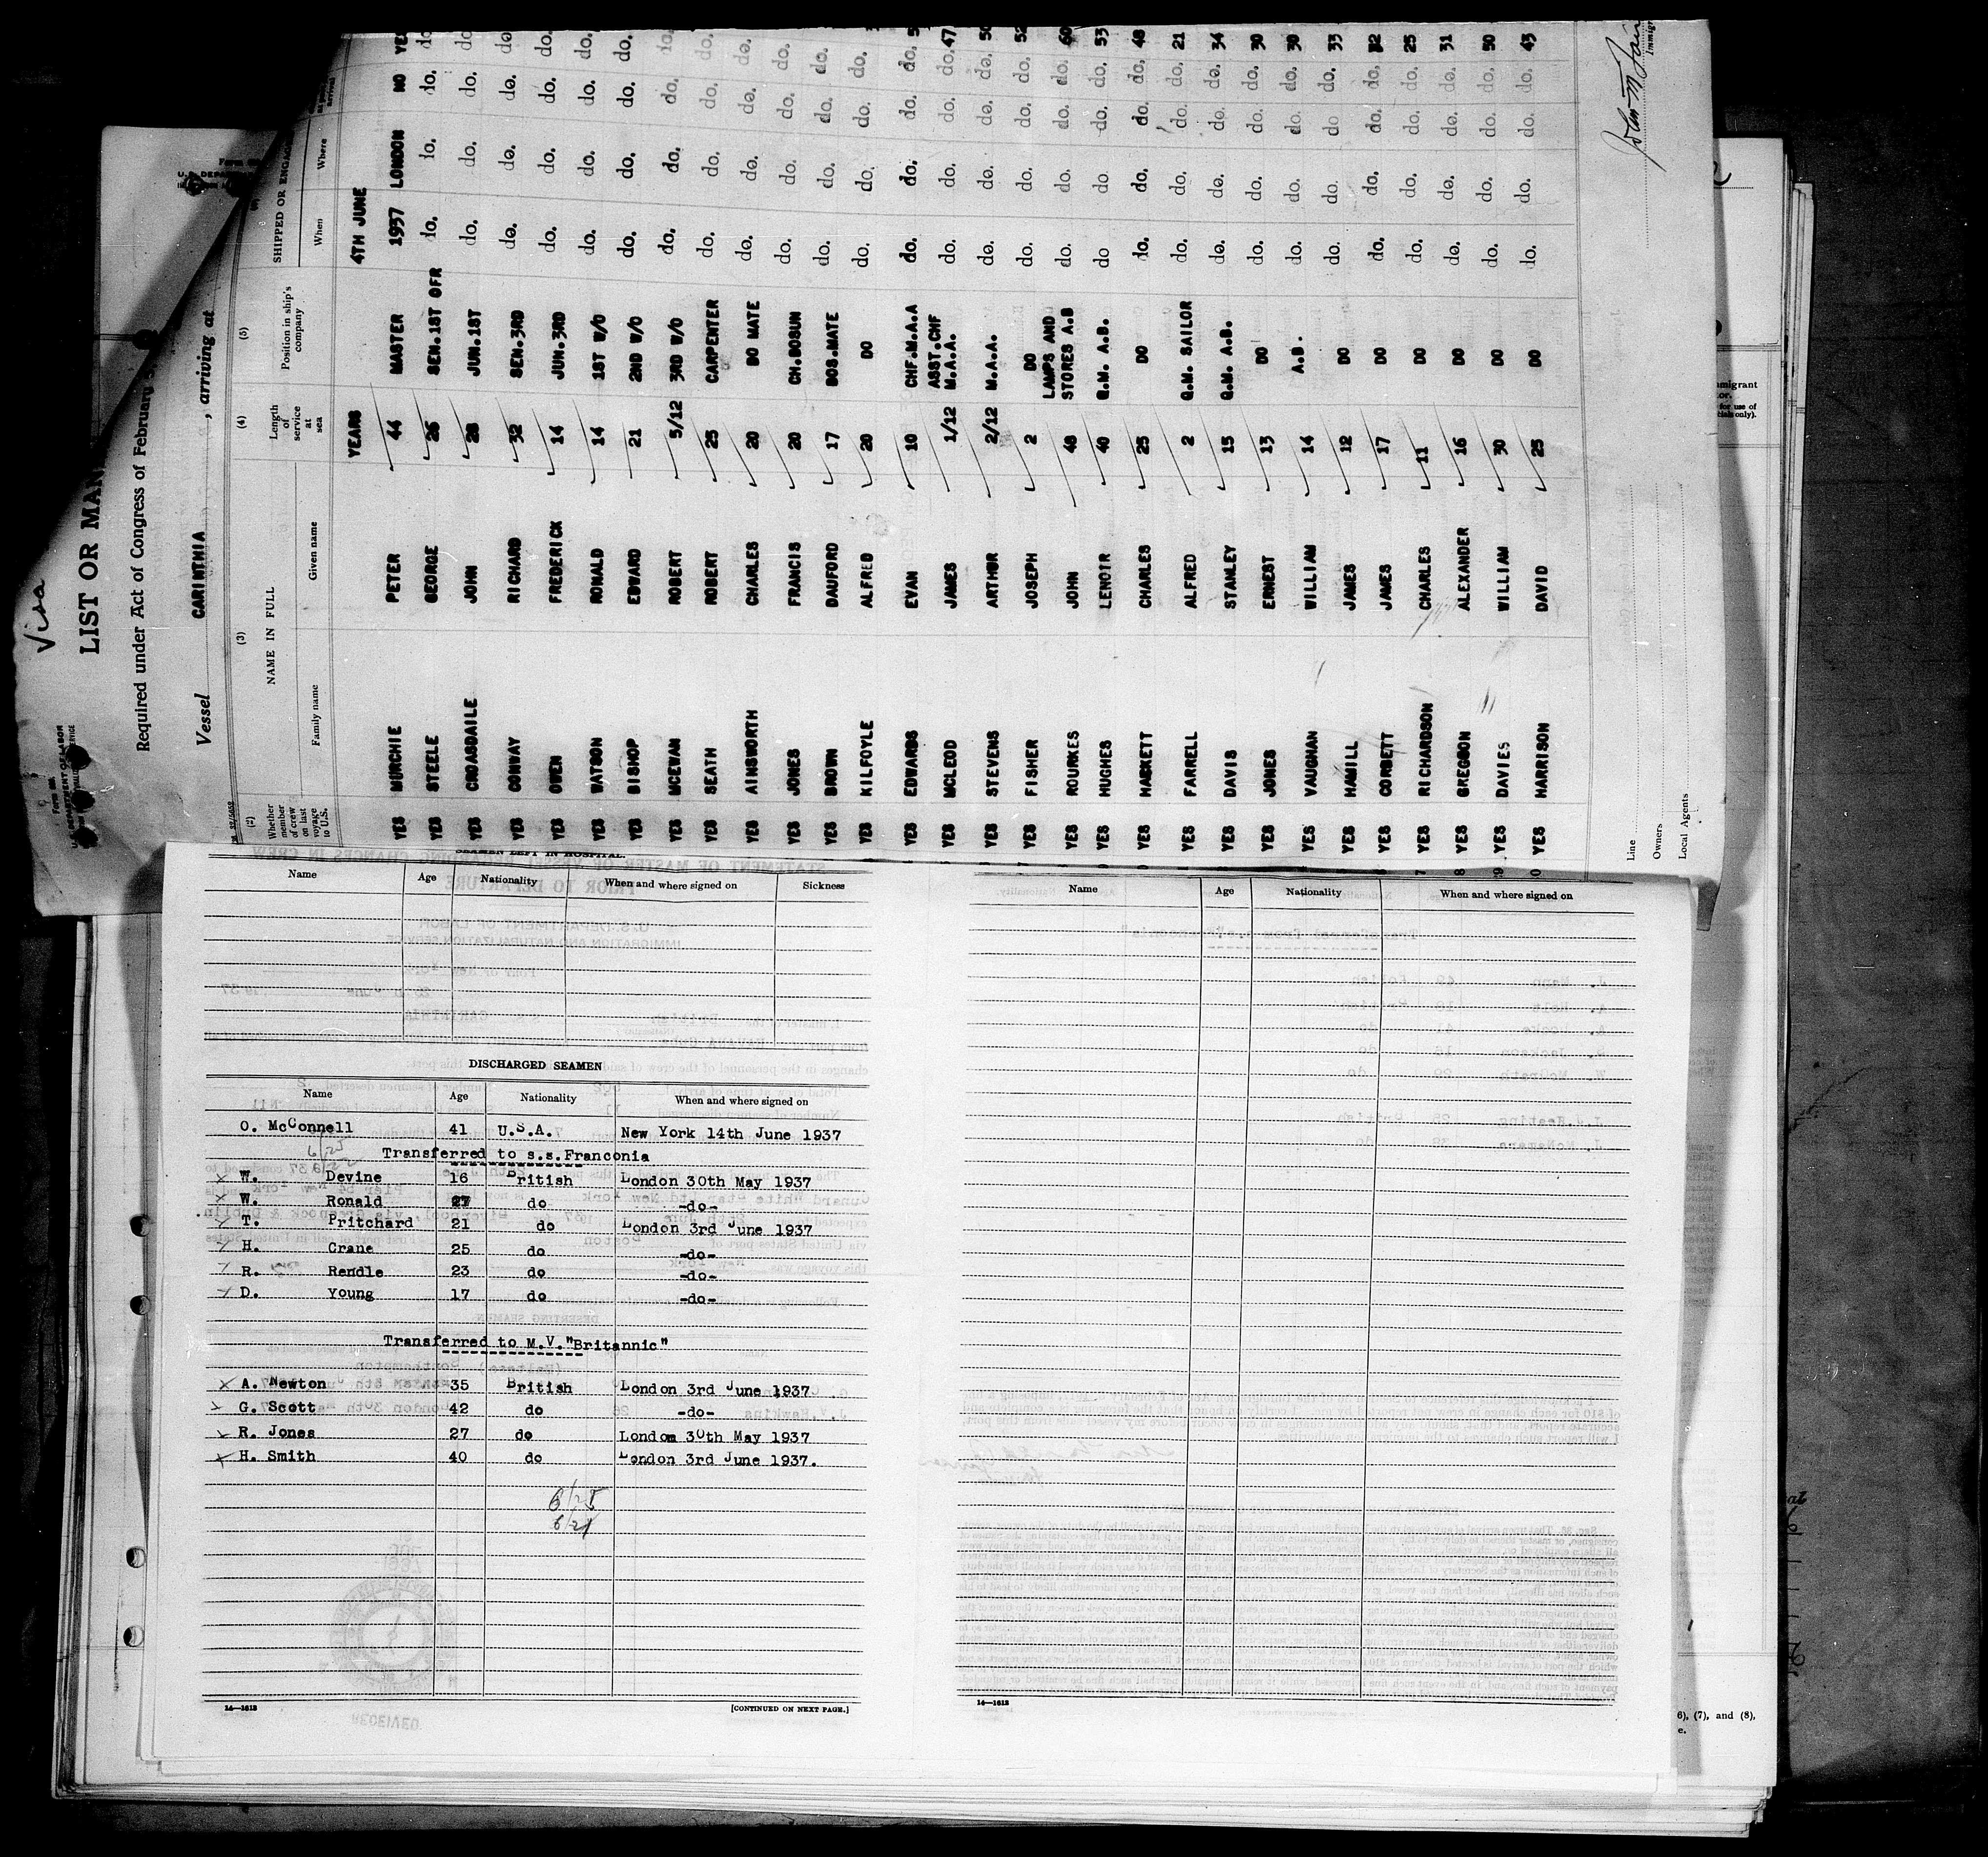 Visa
Form 689
U.S. DEPARTMENT OF LABOR
LIST OR MAN
Required under Act of Congress of February 5,
Vessel CARINTHIA , arriving at
(2) (3) (4) (5)
Whether member of crew on last voyage to U.S. NAME IN FULL Length of service at sea Position in ship's company SHIPPED OR ENGAG
Family name Given name When Where
YEARS 4TH JUNE
YES MURCHIE PETER 44 MASTER 1937 LONDON NO YES
YES STEELE GEORGE 26 SEN.1ST OFR do. do. do. do.
YES CROASDAILE JOHN 28 JUN.1ST do. do. do. do.
YES CONWAY RICHARD 32 SEN.3RD do. do. do. do.
YES OWEN FREDERICK 14 JUN.3RD do. do. do. do.
YES BATSON RONALD 14 1ST W/O do. do. do. do.
YES BISHOP EDWARD 21 2ND W/O do. do. do. do.
YES MCEWAN ROBERT 5/12 3RD W/O do. do. do. do.
YES SEATH ROBERT 25 CARPENTER do. do. do. do.
YES AINSWORTH CHARLES 20 DO MATE do. do. do. do.
YES JONES FRANCIS 20 CH.BOSUN do. do. do. do.
YES BROWN DAUFORD 17 BOS.MATE do. do. do. do.
YES KILFOYLE ALFRED 20 DO do. do. do. do.
YES EDWARDS EVAN 10 CHF.M.A.A do. do. do. do. 5
YES MCLEOD JAMES 1/12 ASST.CHF M.A.A. do. do. do. do. 47
YES STEVENS ARTHUR 2/12 M.A.A. do. do. do. do.
YES FISHER JOSEPH 2 DO do. do. do. do. 52
YES ROURKES JOHN 48 LAMPS AND STORES A.B do. do. do. do. 60
YES HUGHES LENOIR 40 Q.M. A.B. do do do. do. 53
YES HASKETT CHARLES 25 DO do. do. do. do. 48
YES FARRELL ALFRED 2 Q.M. SAILOR do. do. do. do. 21
YES DAVIS STANLEY 15 Q.M. A.B. do. do. do. do. 34
YES JONES ERNEST 13 DO do. do. do. do. 30
YES VAUGHAN WILLIAM 14 A.B. do. do. do. do. 30
YES HAMILL JAMES 12 DO do. do. do do. 33
YES CORBETT JAMES 17 DO do. do. do. do. 32
YES RICHARDSON CHARLES 11 DO do. do. do. do. 25
YES GREGSON ALEXANDER 16 DO do. do. do. do. 31
YES DAVIES WILLIAM 30 DO do. do. do. do. 50
YES HARRISON DAVID 25 DO do. do. do. do. 43
Line
Owners
Local Agents
SEAMEN LEFT IN HOSPITAL.
Name Age Nationality When and where signed on Sickness
DISCHARGED SEAMEN
Name Age Nationality When and where signed on
O. McConnell 41 U.S.A. New York 14th June 1937
6/25
Transferred to s.s.Franconia
W. Devine 16 British London 30th May 1937
W. Ronald 27 do -do-
T. Pritchard 21 do London 3rd June 1937
H. Crane 25 do -do-
R. Rendle 23 do -do-
D. Young 17 do -do-
Transferred to M.V."Britannic"
A. Newton 35 British London 3rd June 1937
G. Scott 42 do -do-
R. Jones 27 do London 30th May 1937
H. Smith 40 do London 3rd June 1937.
6/25
6/21
14—1613 [CONTINUED ON NEXT PAGE.]
Name Age Nationality When and where signed on
14—1613
6), (7), and (8),